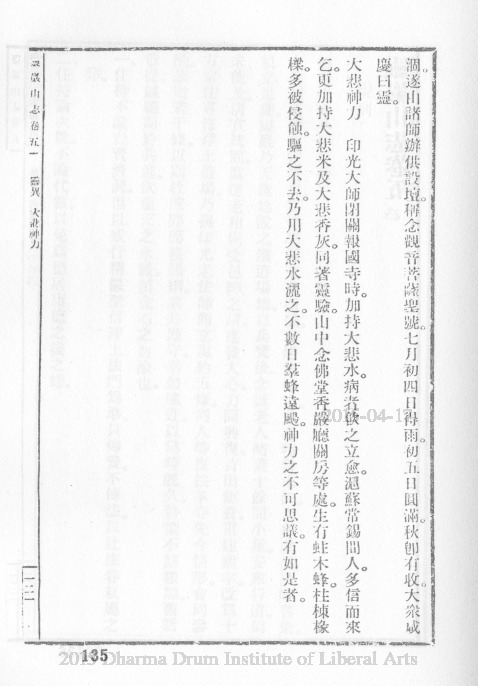 涸。遂山諸師辦供設壇。稱念觀音菩薩聖號。七月初四日得雨。初五日圓滿。秋卽有收。大衆咸
慶曰靈。
大悲神力　印光大師閉關報國寺時。加持大悲水。病者飲之立愈。滬蘇常錫間人。多信而來
乞。更加持大悲米及大悲香灰。同著靈驗。山中念佛堂香嚴廳關房等處。生有蛀木蜂。柱棟椽
樑。多被侵蝕。驅之不去。乃用大悲水灑之。不數日羣蜂遠颺。神力之不可思議。有如是者。
靈巖山志卷五　靈異　大悲神力
135
2015 Dharma Drum Institute of Liberal Arts